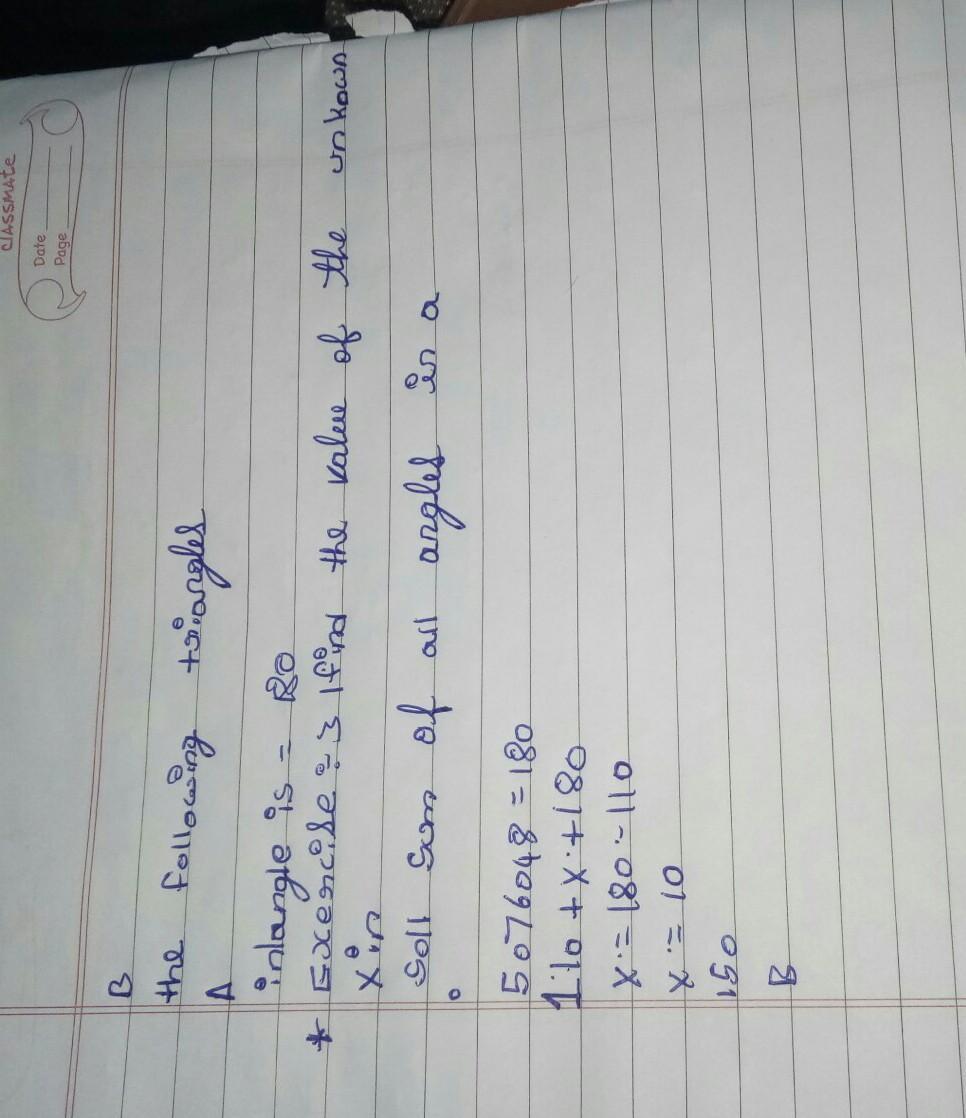 CLASSMATE
Date
Page
B
the following triangles
A
inlangle is = 80
* Exercise : 3 1 find the value of the unkown
x in
Soll Sum of all angles in a
5076048 = 180
110 + x + 180
x = 180 - 110
x = 10
150
B